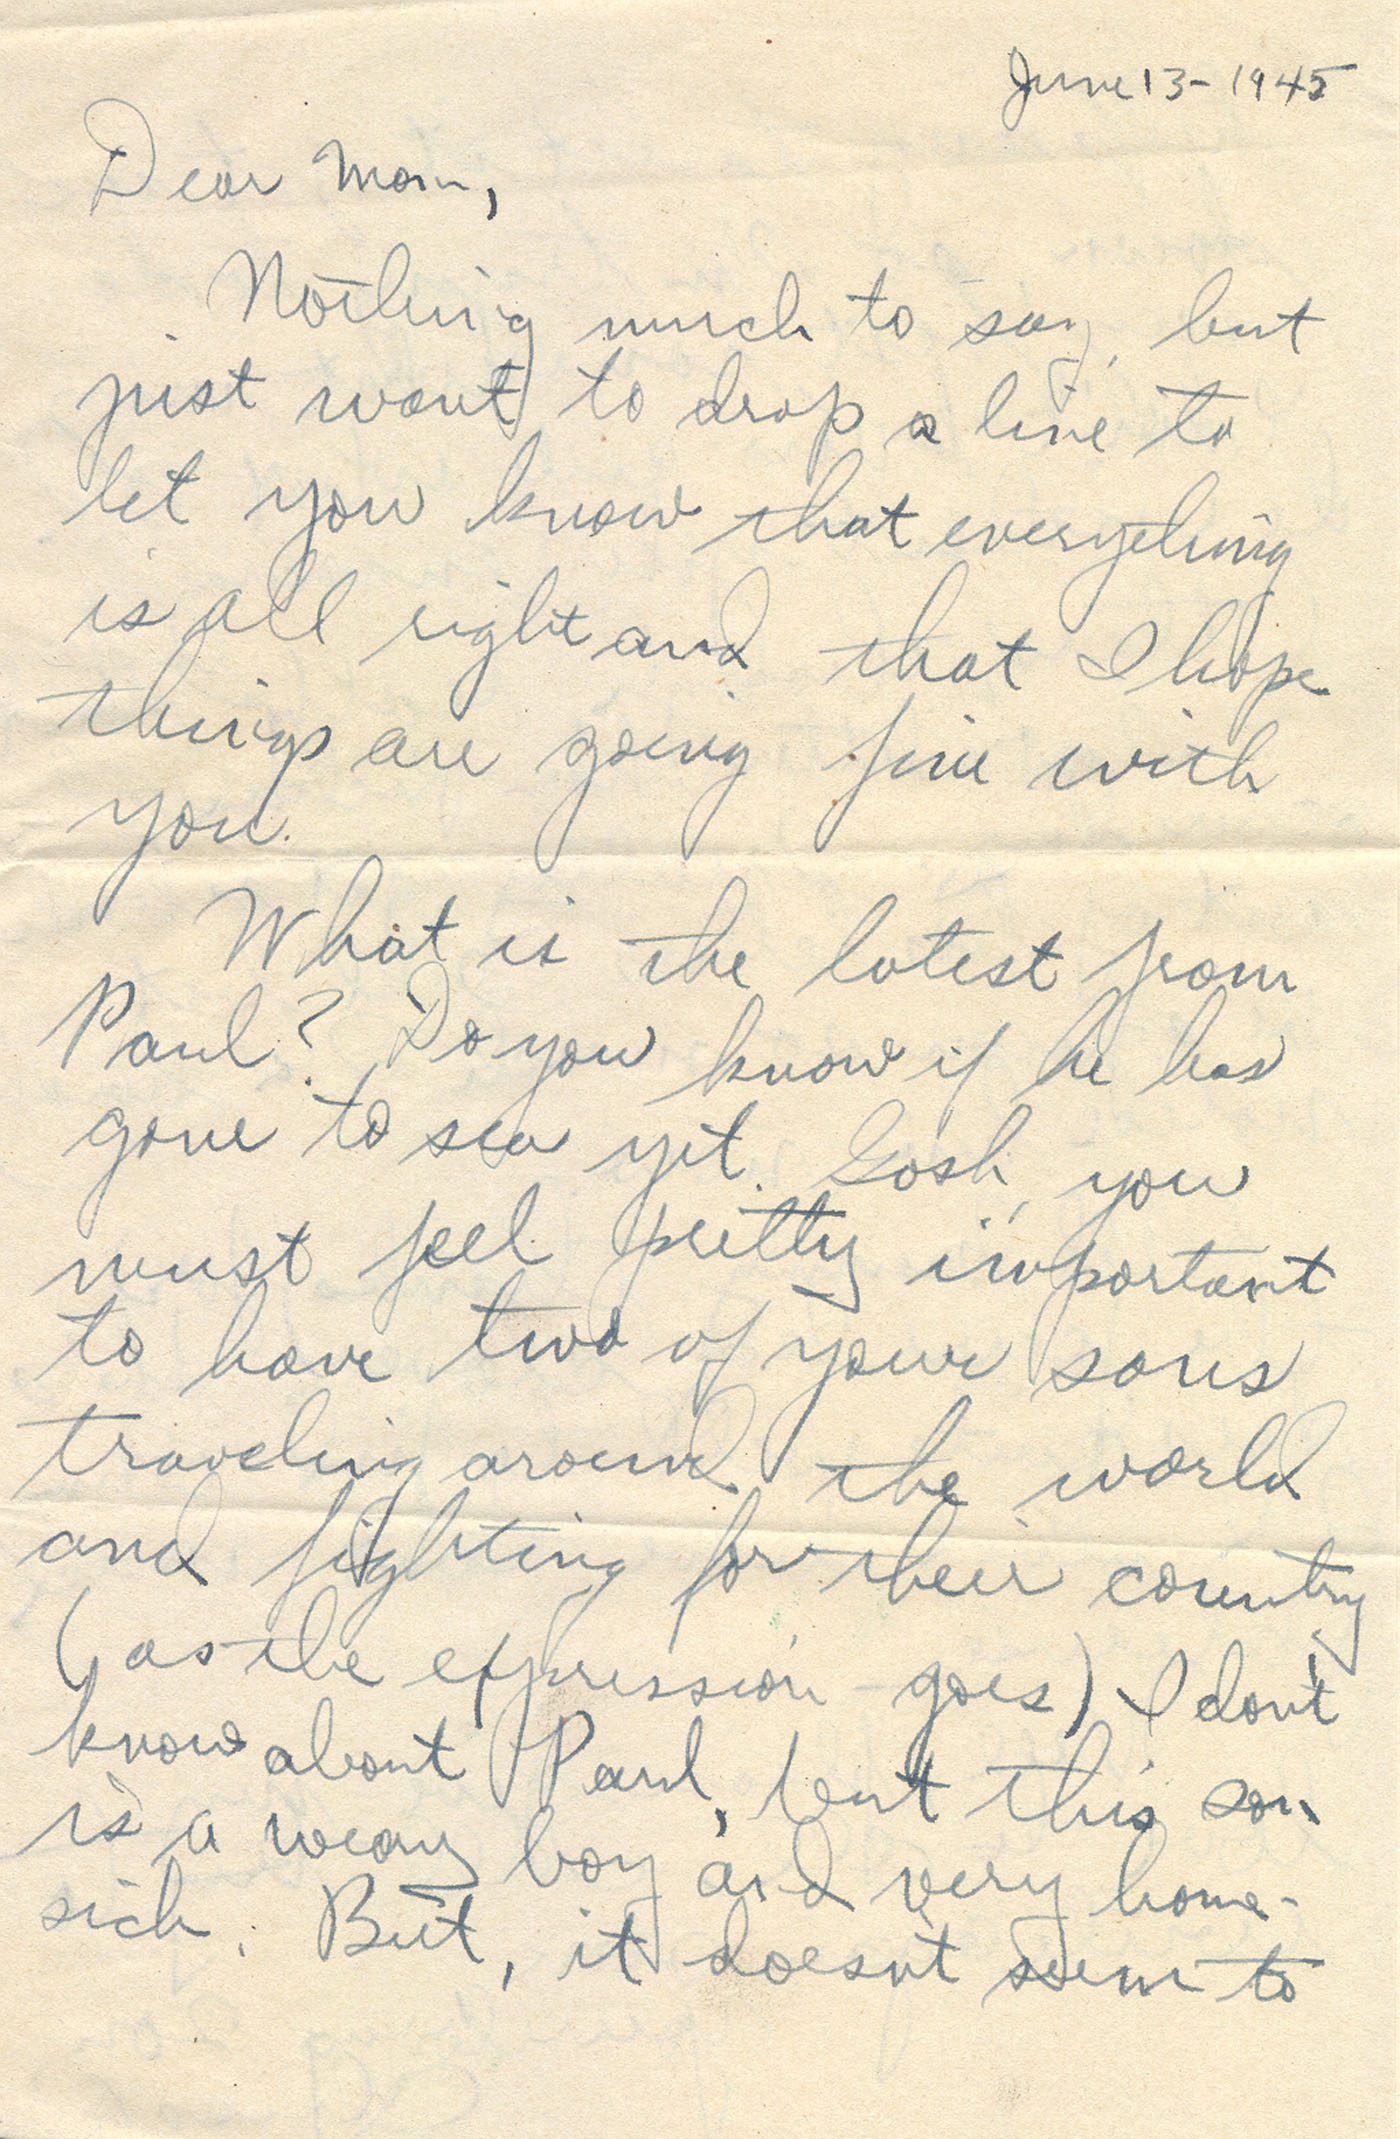 June 13-1945
Dear Mom,
Nothing much to say, but
just want to drop a line to
let you know that everything
is all right and that I hope
things are going fine with
you.
What is the latest from
Paul? Do you know if he has
gone to sea yet. Gosh, you
must feel pretty important
to have two of your sons
traveling around the world
and fighting for their country
(as the expression goes) I don't
know about Paul, but this son
is a weary boy and very home-
sick. But, it doesn't seem to